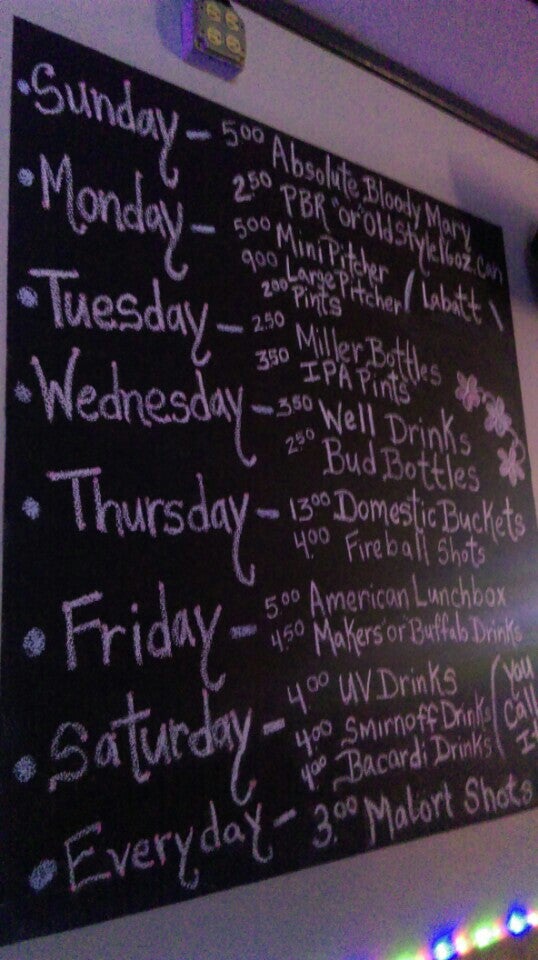 • Sunday – 5.00 Absolute Bloody Mary
2.50 PBR "or" Old Style 16oz. can
• Monday – 5.00 Mini Pitcher
9.00 Large Pitcher ( Labatt \
2.00 Pints
• Tuesday – 2.50 Miller Bottles
3.50 IPA Pints
• Wednesday – 3.50 Well Drinks
2.50 Bud Bottles
• Thursday – 13.00 Domestic Buckets
4.00 Fireball Shots
• Friday – 5.00 American Lunchbox
4.50 Makers "or" Buffalo Drinks
• Saturday – 4.00 UV Drinks
4.00 Smirnoff Drinks
4.00 Bacardi Drinks
( You
Call
It
• Everyday – 3.00 Malort Shots